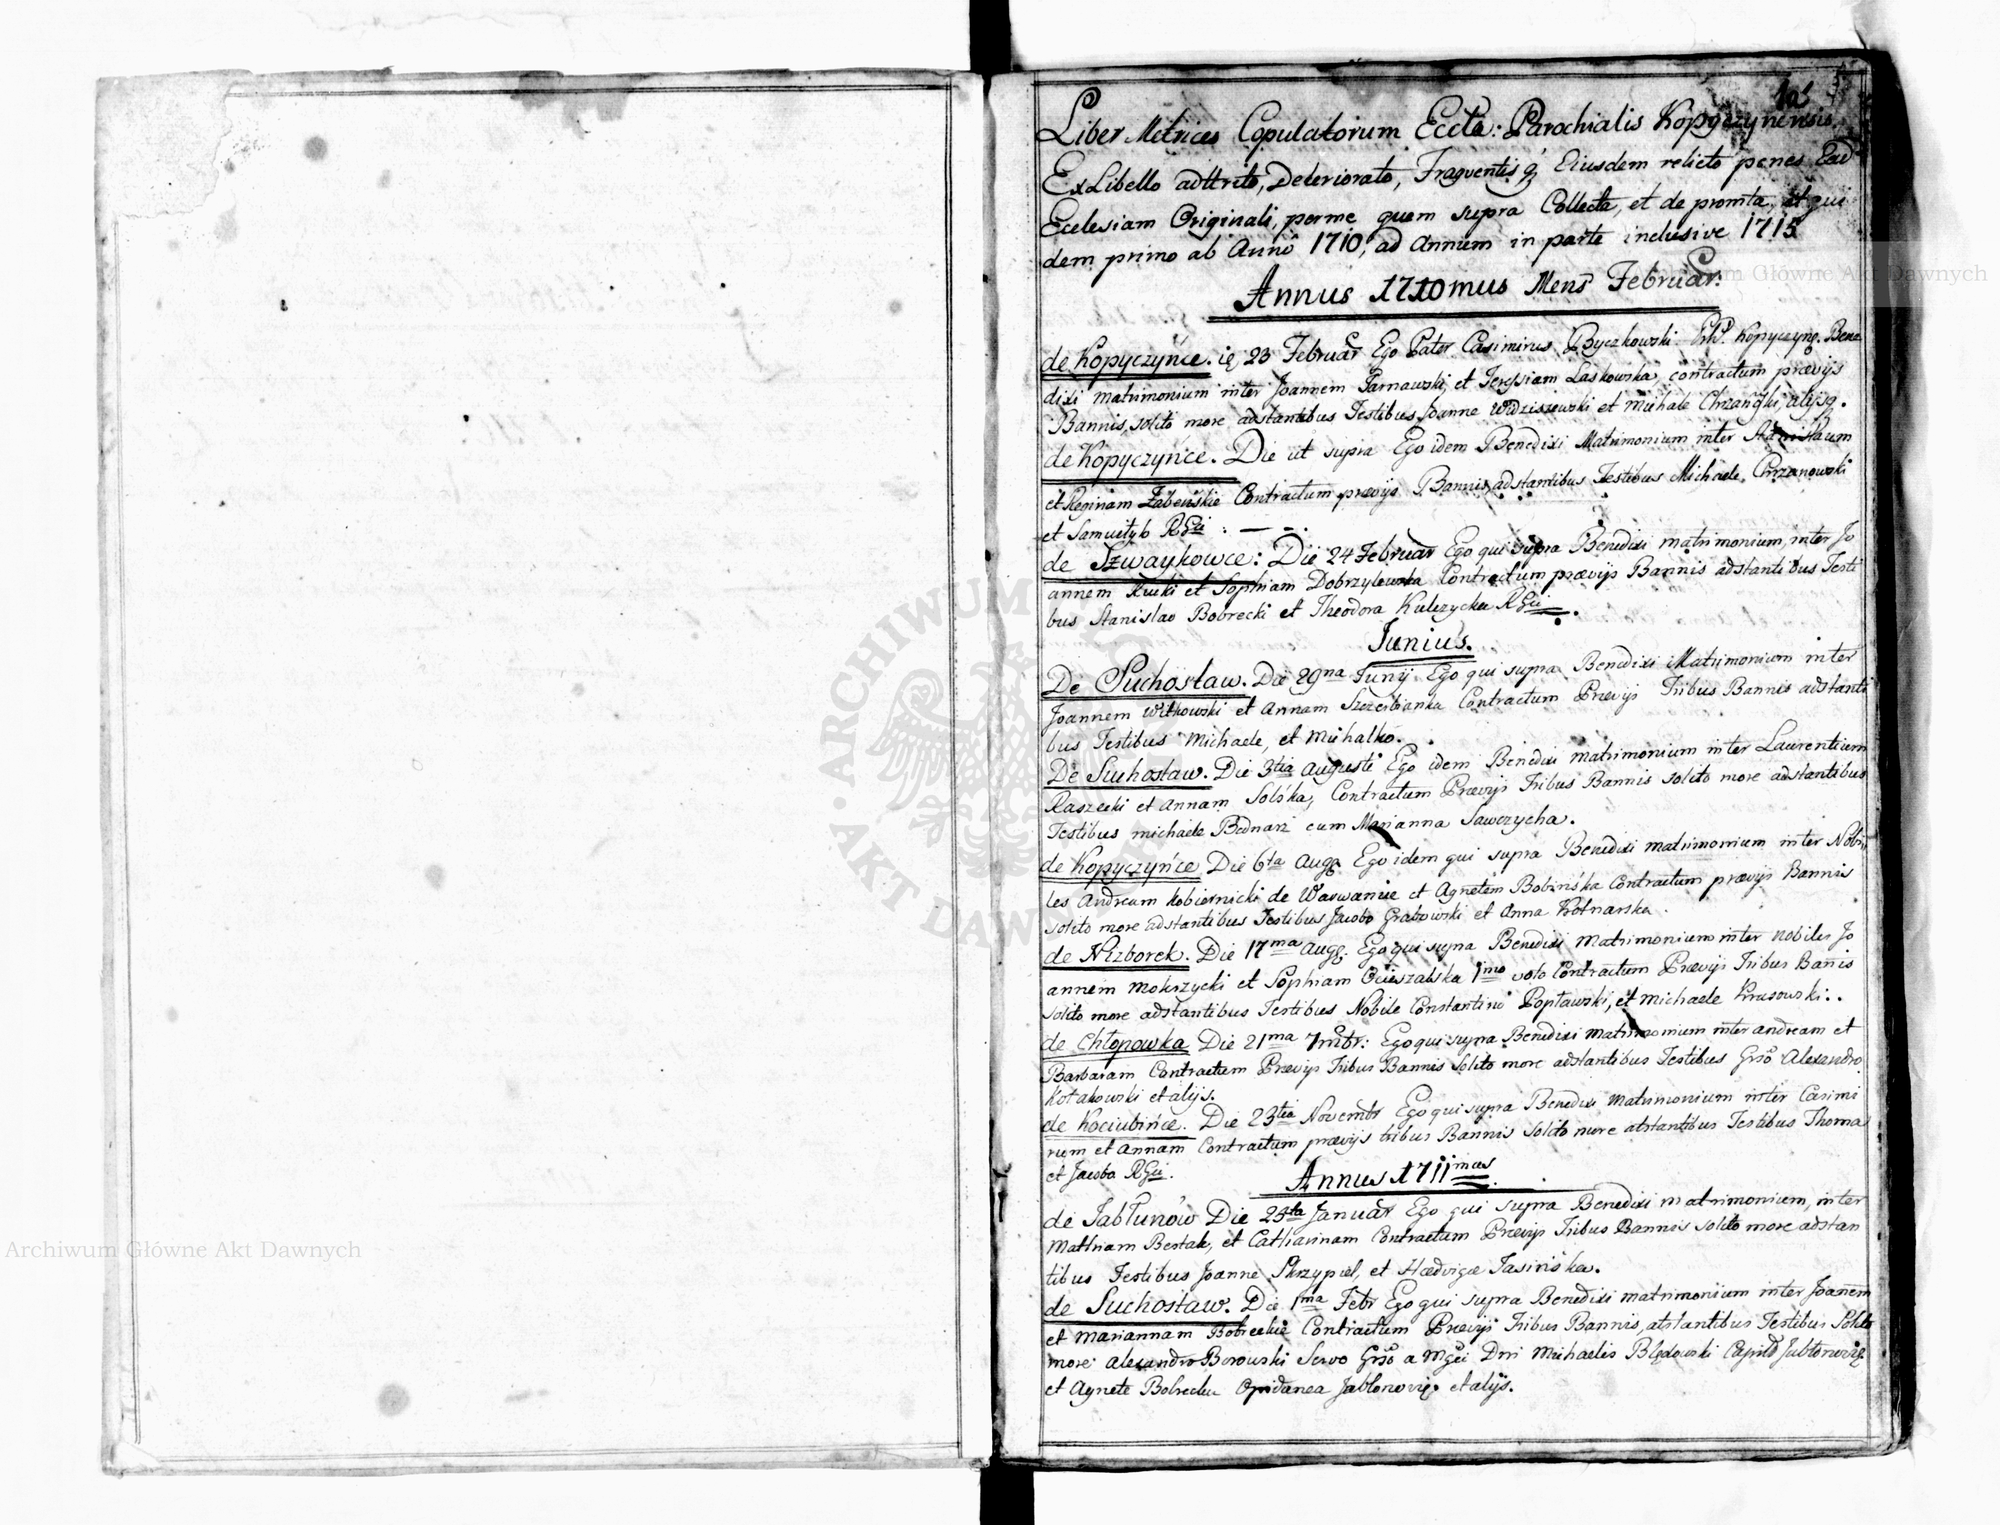 1a
Liber Metrices Copulatorum Eccta: Parochialis Kopyczynensis,
Ex Libello adttrito, Deteriorato, Fragventisq, Eiusdem relicto penes Ead
Ecclesiam Originali, perme quem supra Collecta, et de promta, et qui
dem primo ab Anno 1710, ad Annum in parte inclusive 1715
Annus 1710mus Mens Februar:
de Kopyczyńce. 23 Februar Ego Pater Casimirus Byczkowski Kopyczyng. Bene
dixi matrimonium inter Joannem Parnawski, et Teressiam Laskowska contractum prævijs
Bannis, solito more adstantibus Testibus Joanne Widziszewski et Michale Chrzański, alijsq.
de Kopyczyńce. Die ut supra Ego idem Benedixi Matrimonium inter
et Reginam Contractum prævijs Bannis adstantibus Testibus Michaele Chrzanowski
et
de Szwaykowce: Die 24 Februar Ego qui supra Benedixi matrimonium, inter Jo
annem Rucki et Sophiam Dobrzylewska Contractum prævijs Bannis adstantibus Testi
bus Stanislao Bobrecki et Theodora Kulczycka
Junius.
De Suchostaw. Die 29na Junij Ego qui supra Benedixi Matrimonium inter
Joannem Witkowski et Annam Contractum Prævijs Tribus Bannis adstanti
bus Testibus Michaele, et Michalko.
De Suchostaw. Die 3tia Augusti Ego idem Benedixi matrimonium inter Laurentium
Raszecki et Annam Solska, Contractum Prævijs Tribus Bannis solito more adstantibus
Testibus michaele Bednarz cum Marianna Sawczycha.
de Kopyczyńce Die 6ta Augg Ego idem qui supra Benedixi matrimonium inter Nobi
les Andream Kobiernicki de Warwanie et Agnetem Bobińska Contractum prævijs Bannis
solito more adstantibus Testibus Jacobo Grabowski et Anna Kotnarska.
de Nizborek. Die 17ma Augg. Ego qui supra Benedixi Matrimonium inter nobiles Jo
annem Mokrzycki et Sophiam Cieszalska 1mo voto Contractum Prævijs Tribus Banis
solito more adstantibus Testibus Nobile Constantino Popławski, et Michaele Krasowski..
de Chłopowka Die 21ma 7mbr: Ego qui supra Benedixi Matrimonium inter andream et
Barbaram Contractum Prævijs Tribus Bannis Solito more adstantibus Testibus Grso Alexandro
Kotakowski et alijs.
de Kociubińce. Die 23tia Novembr Ego qui supra Benedixi Matrimonium inter Casimi
rum et Annam Contractum prævijs tribus Bannis solito more atstantibus Testibus Thoma
et Jacoba
Annus 1711mus
de Jabłunów Die 25ta Januar Ego qui supra Benedixi matrimonium, inter
Mathiam Bestak, et Catharinam Contractum Prævijs Tribus Bannis solito more adstan
tibus Testibus Joanne Skrzypiel, et Hædvige Jasińska.
de Suchostaw. Die 1ma Febr Ego qui supra Benedixi matrimonium inter Joanem
et Mariannam Bobreckie Contractum Prævijs Tribus Bannis, atstantibus Testibus Solito
more Alexandro Borowski Servo Grso a Mgci Dni Michaelis Blędowski
et Agnete Bobrecka Opidanea Jabłonovię. et alijs.
ARCHIWUM GŁÓWNE AKT DAWNYCH
Archiwum Główne Akt Dawnych
Archiwum Główne Akt Dawnych